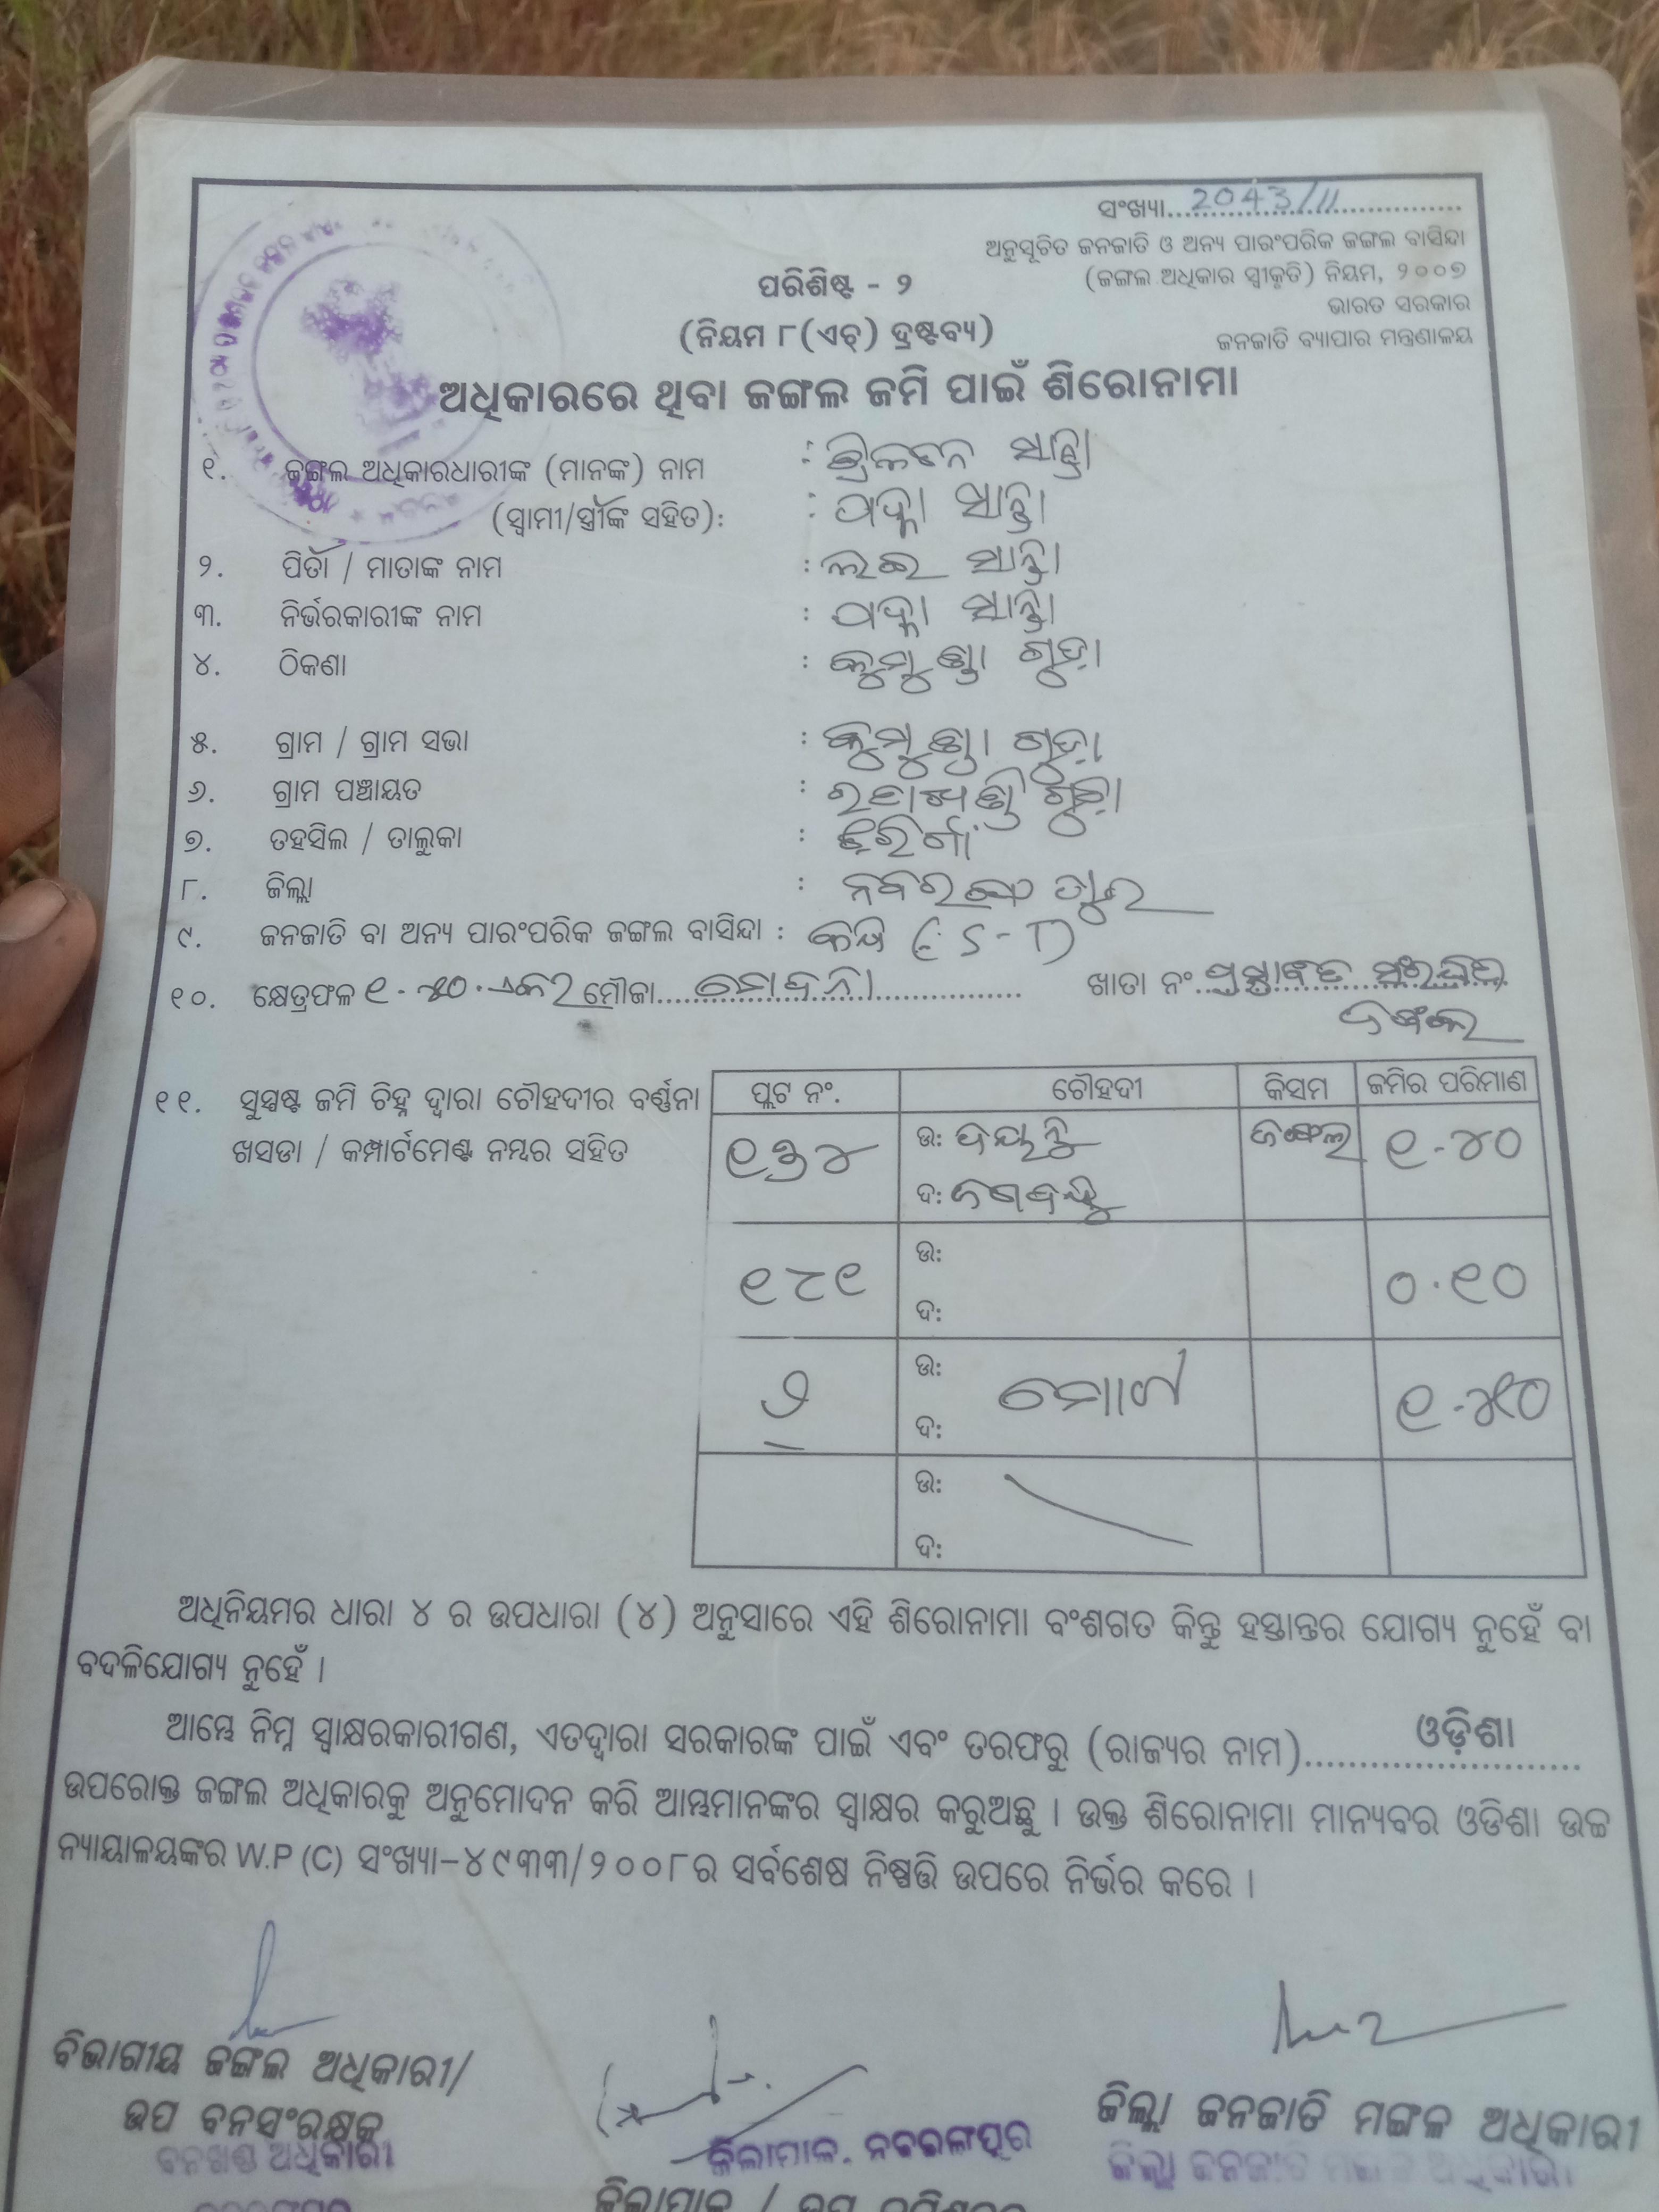 ସଂଖ୍ୟା 2043/11
ଅନୁସୂଚିତ ଜନଜାତି ଓ ଅନ୍ୟ ପାରଂପରିକ ଜଙ୍ଗଲ ବାସିନ୍ଦା
(ଜଙ୍ଗଲ ଅଧିକାର ସ୍ୱୀକୃତି) ନିୟମ, ୨୦୦୭
ଭାରତ ସରକାର
ଜନଜାତି ବ୍ୟାପାର ମନ୍ତ୍ରଣାଳୟ
ପରିଶିଷ୍ଟ - ୨
(ନିୟମ ୮(ଏଚ୍) ଦ୍ରଷ୍ଟବ୍ୟ)
ଅଧିକାରରେ ଥିବା ଜଙ୍ଗଲ ଜମି ପାଇଁ ଶିରୋନାମା
୧. ଜଙ୍ଗଲ ଅଧିକାରଧାରୀଙ୍କ (ମାନଙ୍କ) ନାମ : ତ୍ରିଲୋଚନ ସାନ୍ତା
(ସ୍ୱାମୀ/ସ୍ତ୍ରୀଙ୍କ ସହିତ): : ପଦ୍ମା ସାନ୍ତା
୨. ପିତା / ମାତାଙ୍କ ନାମ : ସାନ୍ତା
୩. ନିର୍ଭରକାରୀଙ୍କ ନାମ : ପଦ୍ମା ସାନ୍ତା
୪. ଠିକଣା : କୁମୁଣ୍ଡା ଗୁଡ଼ା
୫. ଗ୍ରାମ / ଗ୍ରାମ ସଭା : କୁମୁଣ୍ଡା ଗୁଡ଼ା
୬. ଗ୍ରାମ ପଞ୍ଚାୟତ : ଗୁଡ଼ା
୭. ତହସିଲ / ତାଲୁକା : ଝରିଗାଁ
୮. ଜିଲ୍ଲା : ନବରଙ୍ଗପୁର
୯. ଜନଜାତି ବା ଅନ୍ୟ ପାରଂପରିକ ଜଙ୍ଗଲ ବାସିନ୍ଦା : (S-T)
୧୦. କ୍ଷେତ୍ରଫଳ ୧-୫୦ ଏକର ମୌଜା ଖାତା ନଂ ପ୍ରସ୍ତାବିତ ସଂରକ୍ଷିତ
ଜଙ୍ଗଲ
୧୧. ସୁସ୍ପଷ୍ଟ ଜମି ଚିହ୍ନ ଦ୍ୱାରା ଚୌହଦୀର ବର୍ଣ୍ଣନା
ଖସଡା / କମ୍ପାର୍ଟମେଣ୍ଟ ନମ୍ବର ସହିତ
ପ୍ଲଟ ନଂ. ଚୌହଦୀ କିସମ ଜମିର ପରିମାଣ
୧୬୪ ଉ: ଜଙ୍ଗଲ ୧-୪୦
ଦ: ଜଗବନ୍ଧୁ
୧୮୧ ଉ: ୦.୧୦
ଦ:
୨ ଉ: ମୋଟ ୧-୫୦
ଦ:
ଉ:
ଦ:
ଅଧିନିୟମର ଧାରା ୪ ର ଉପଧାରା (୪) ଅନୁସାରେ ଏହି ଶିରୋନାମା ବଂଶଗତ କିନ୍ତୁ ହସ୍ତାନ୍ତର ଯୋଗ୍ୟ ନୁହେଁ ବା
ବଦଳିଯୋଗ୍ୟ ନୁହେଁ ।
ଆମ୍ଭେ ନିମ୍ନ ସ୍ୱାକ୍ଷରକାରୀଗଣ, ଏତଦ୍ୱାରା ସରକାରଙ୍କ ପାଇଁ ଏବଂ ତରଫରୁ (ରାଜ୍ୟର ନାମ) ଓଡ଼ିଶା
ଉପରୋକ୍ତ ଜଙ୍ଗଲ ଅଧିକାରକୁ ଅନୁମୋଦନ କରି ଆମ୍ଭମାନଙ୍କର ସ୍ୱାକ୍ଷର କରୁଅଛୁ । ଉକ୍ତ ଶିରୋନାମା ମାନ୍ୟବର ଓଡିଶା ଉଚ୍ଚ
ନ୍ୟାୟାଳୟଙ୍କର W.P (C) ସଂଖ୍ୟା-୪୯୩୩/୨୦୦୮ର ସର୍ବଶେଷ ନିଷ୍ପତ୍ତି ଉପରେ ନିର୍ଭର କରେ ।
ବିଭାଗୀୟ ଜଙ୍ଗଲ ଅଧିକାରୀ/
ଉପ ବନସଂରକ୍ଷକ
ବନଖଣ୍ଡ ଅଧିକାରୀ
ଜିଲାପାଳ, ନବରଙ୍ଗପୁର
ଜିଲ୍ଲା ଜନଜାତି ମଙ୍ଗଳ ଅଧିକାରୀ
ଜିଲ୍ଲା ଜନଜାତି ମଙ୍ଗଳ ଅଧିକାରୀ